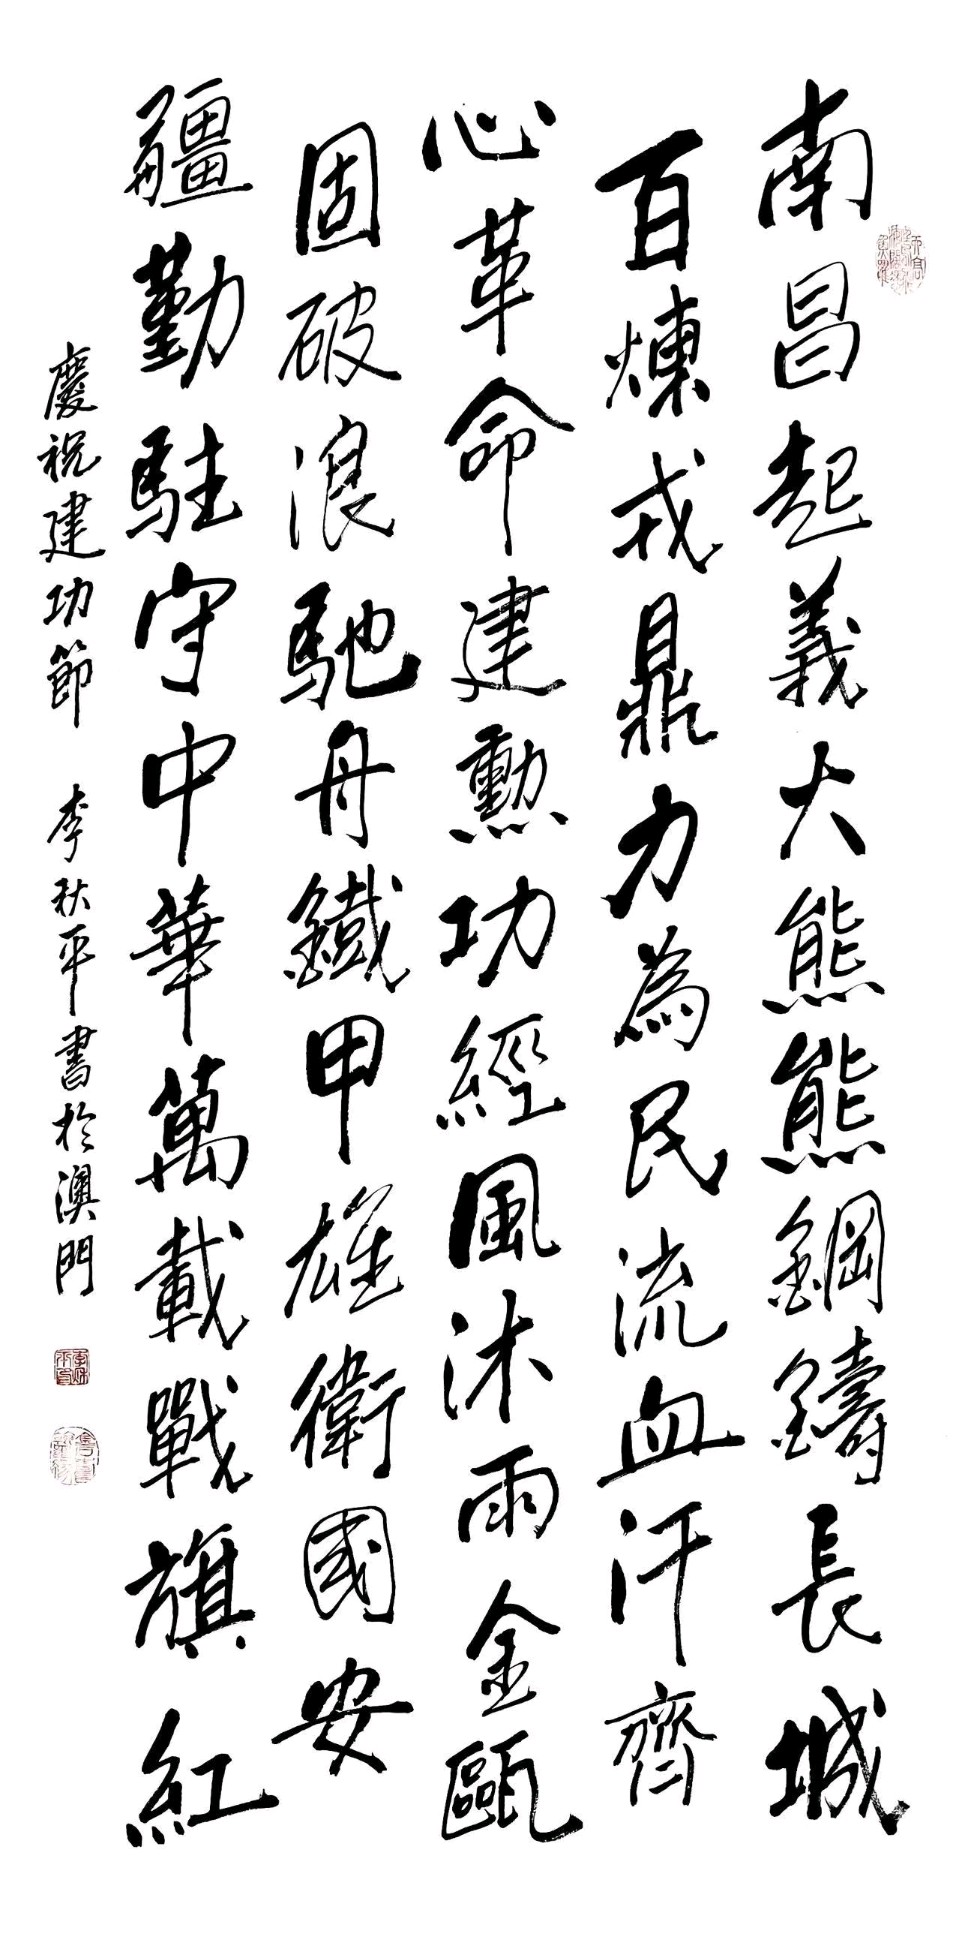 南昌起義大熊熊鋼鑄長城
百煉戎鼎力為民流血汗齊
心革命建勳功經風沐雨金甌
固破浪馳舟鐵甲雄衛國安
疆勤駐守中華萬載戰旗紅
慶祝建功節 李秋平書於澳門